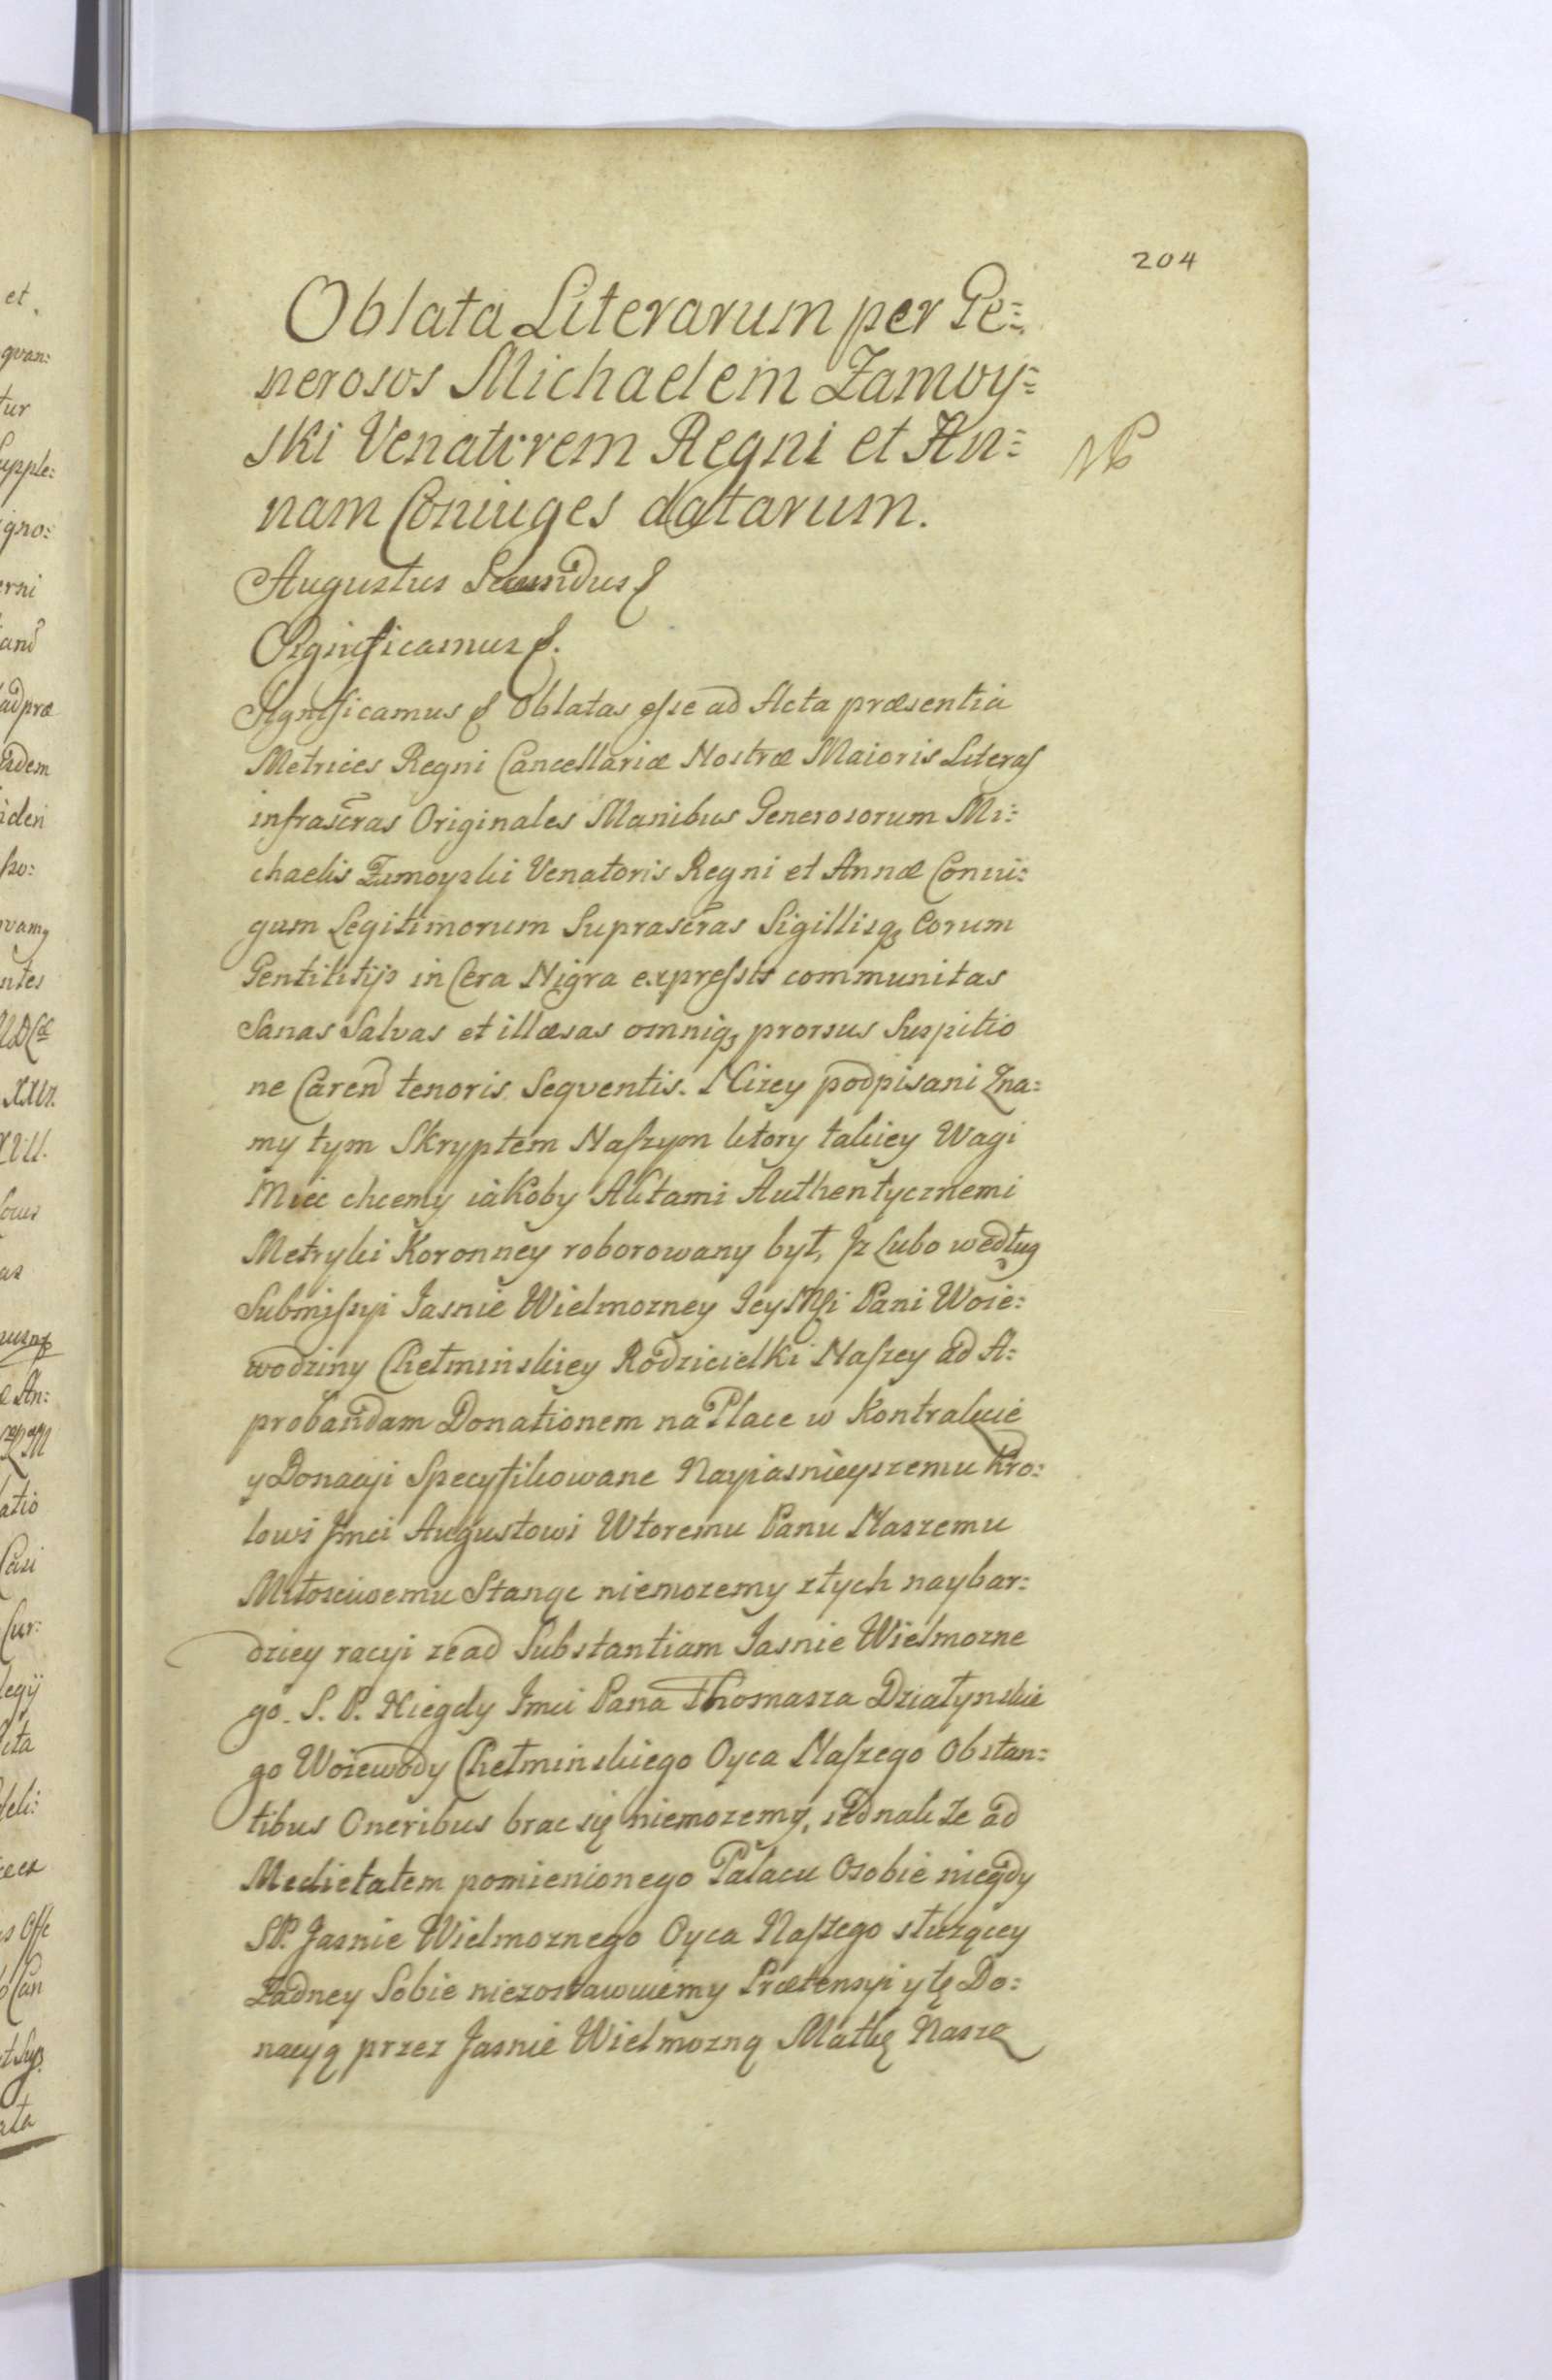 204
Oblata Literarum per Ge=
nerosos Michaelem Zamoy=
ski Venatorem Regni et An=
NB
nam Coniuges datarum.
Augustus Secundus
Significamus
Significamus Oblatas esse ad Acta præsentia
Metrices Regni Cancellariæ Nostræ Maioris Literas
infrascras Originales Manibus Generosorum Mi=
chaelis Zamoyski Venatoris Regni et Annæ Coniu=
gum Legitimorum Suprascras Sigillisq; Eorum
Gentilitijs in Cera Nigra expressis communitas
Sanas Salvas et illæsas omniq; prorsus Suspitio
ne Caren tenoris Seqventis. Nizey podpisani Zna=
my tym Skryptem Naszym ktory takiey Wagi
Miec chcemy iakoby Aktami Authentycznemi
Metryki Koronney roborowany był, Jz Lubo według
Submissyi Jasnie Wielmozney Jey Mści Pani Woie=
wodziny Chełminskiey Rodzicielki Naszey ad A=
probandam Donationem na Place w Kontrakcie
y Donacyi Specyfikowane Nayiasnieyszemu Kro=
lowi Jmci Augustowi Wtoremu Panu Naszemu
Miłosciwemu Stanąc niemozemy z tych naybar=
dziey racyi ze ad Substantiam Jasnie Wielmozne
go. S. P. Niegdy Jmci Pana Thomasza Działynskie
go Woiewody Chełminskiego Oyca Naszego Obstan=
tibus Oneribus brac się niemozemy, iednak ze ad
Medietatem pomienionego Pałacu Osobie niegdy
SP. Jasnie Wielmoznego Oyca Naszego słuzącey
Zadney Sobie niezostawuiemy Prætensyi y tę Do=
nacyą przez Jasnie Wielmozną Matkę Naszę